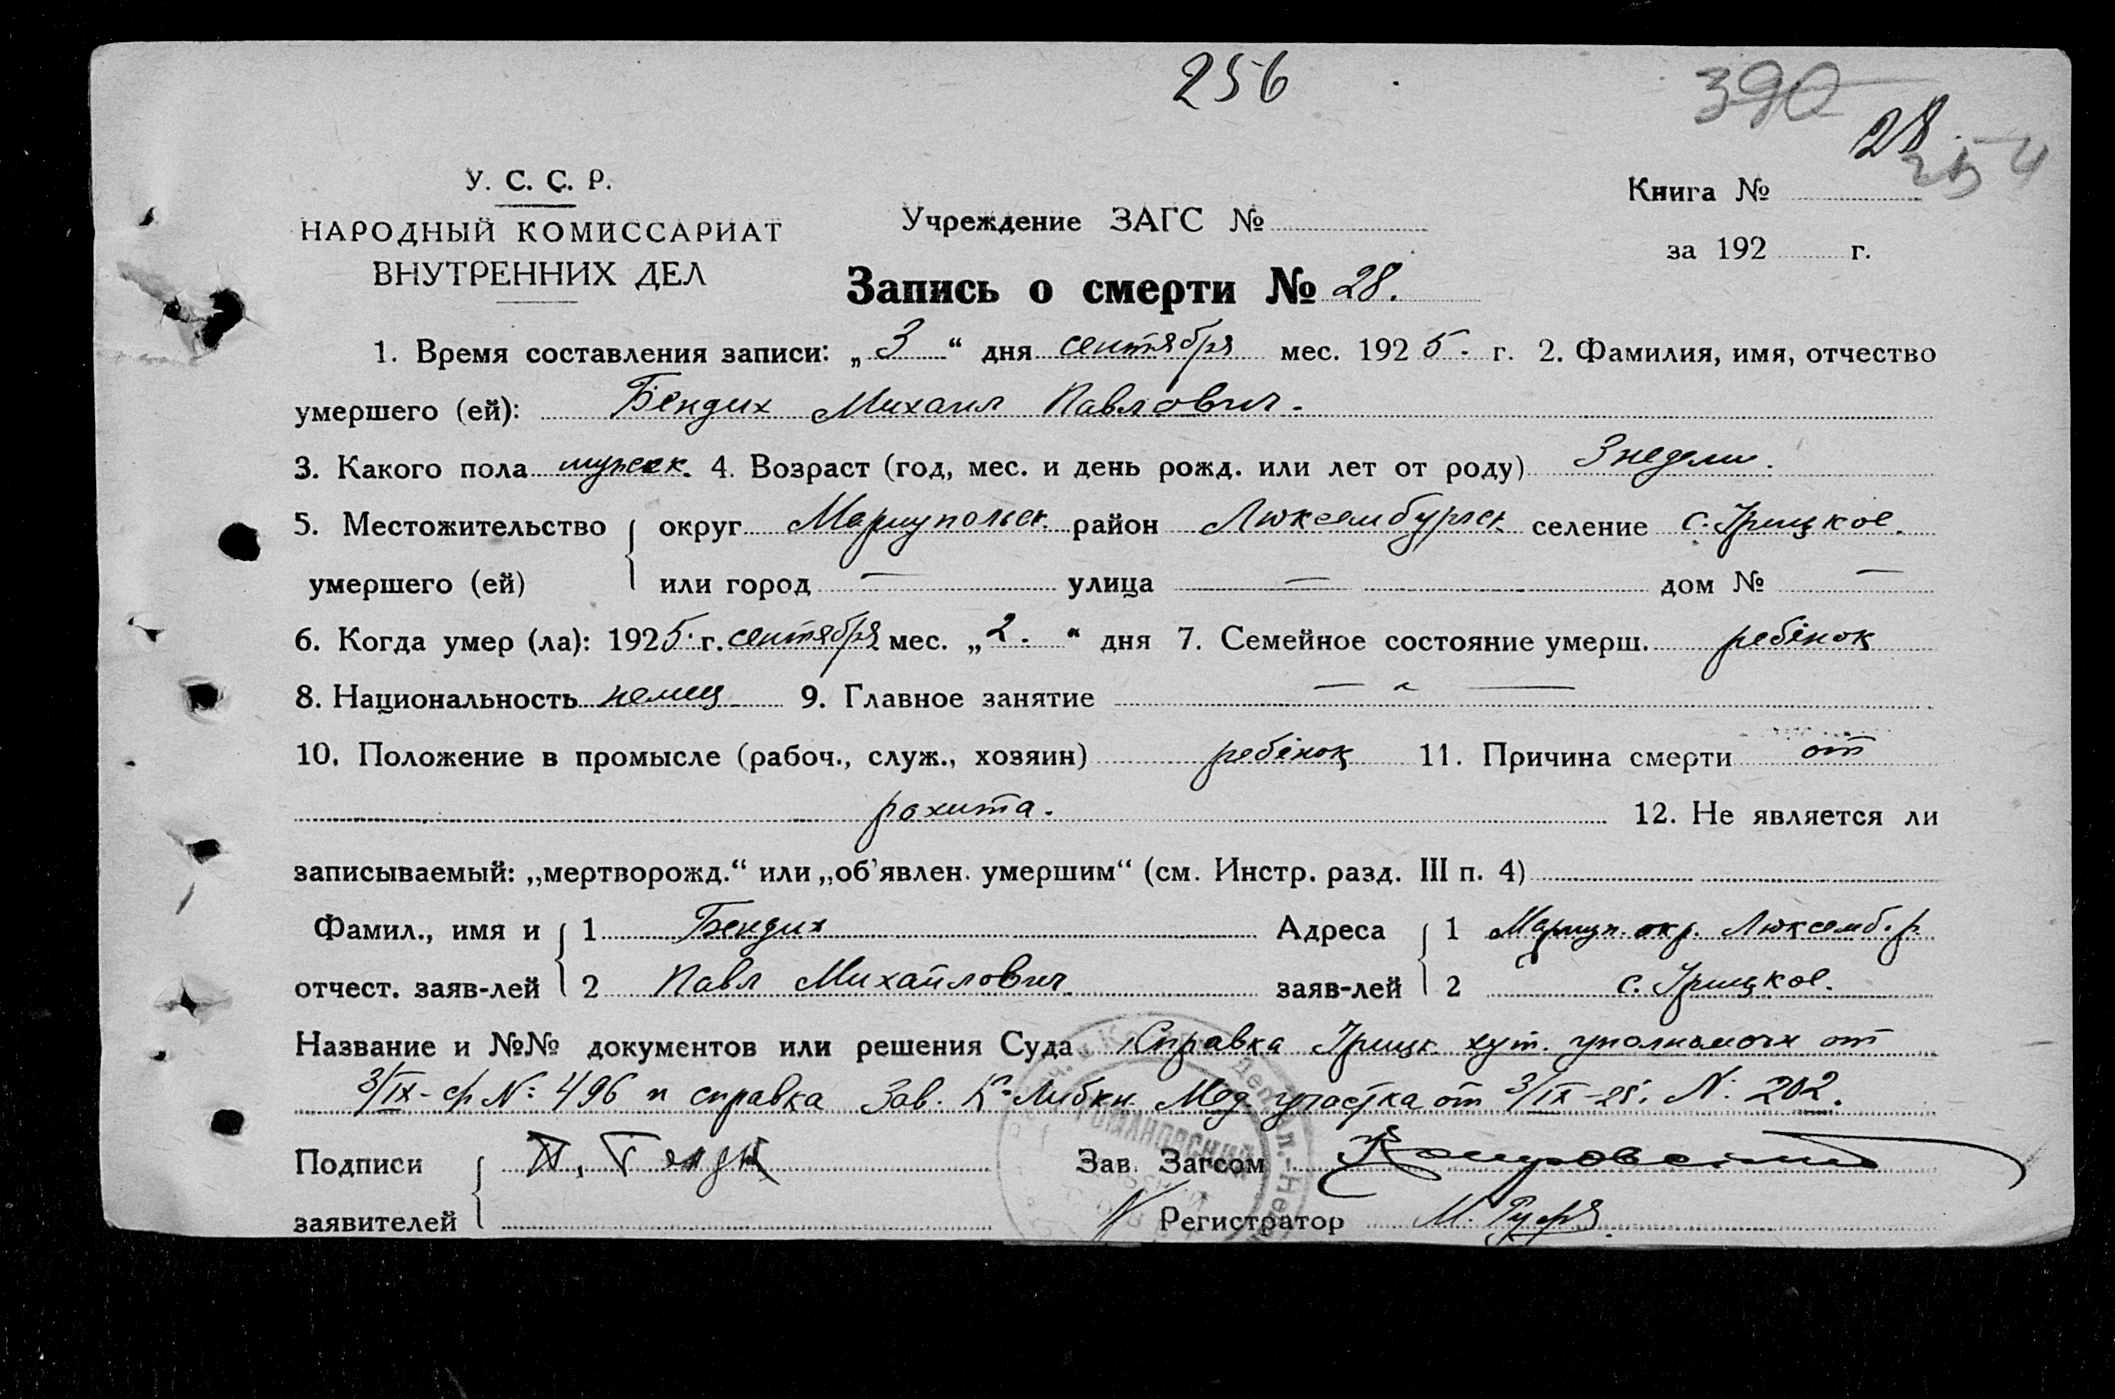 256
390
28
254
У. С. С. Р.
НАРОДНЫЙ КОМИССАРИАТ
ВНУТРЕННИХ ДЕЛ
Учреждение ЗАГС №
Книга №
за 192 г.
Запись о смерти № 28.
1. Время составления записи: „3“ дня сентября мес. 1925. г. 2. Фамилия, имя, отчество
умершего (ей): Бендих Михаил Павлович.
3. Какого пола мужск. 4. Возраст (год, мес. и день рожд. или лет от роду) 3 недели.
5. Местожительство округ Мариупольск. район Люксембургск селение с. Грицкое.
умершего (ей) или город — улица — дом № —
6. Когда умер (ла): 1925. г. сентября мес. „2.“ дня 7. Семейное состояние умерш. ребінок
8. Национальность немец 9. Главное занятие — „ —
10. Положение в промысле (рабоч., служ., хозяин) ребінок 11. Причина смерти от
рахита. 12. Не является ли
записываемый: „мертворожд.“ или „об'явлен. умершим“ (см. Инстр. разд. III п. 4)
Фамил., имя и 1 Бендих Адреса 1 Мариуп. окр. Люксемб. р
отчест. заяв-лей 2 Павл Михайлович заяв-лей 2 с. Грицкое.
Название и №№ документов или решения Суда Справка Грицк. хут. уполномоч от
3/IX- № 496 и справка Зав. К-Либкн. Мед участка от 3/IX-25. № 202.
Подписи П. Зав. Загсом
заявителей Регистратор М.